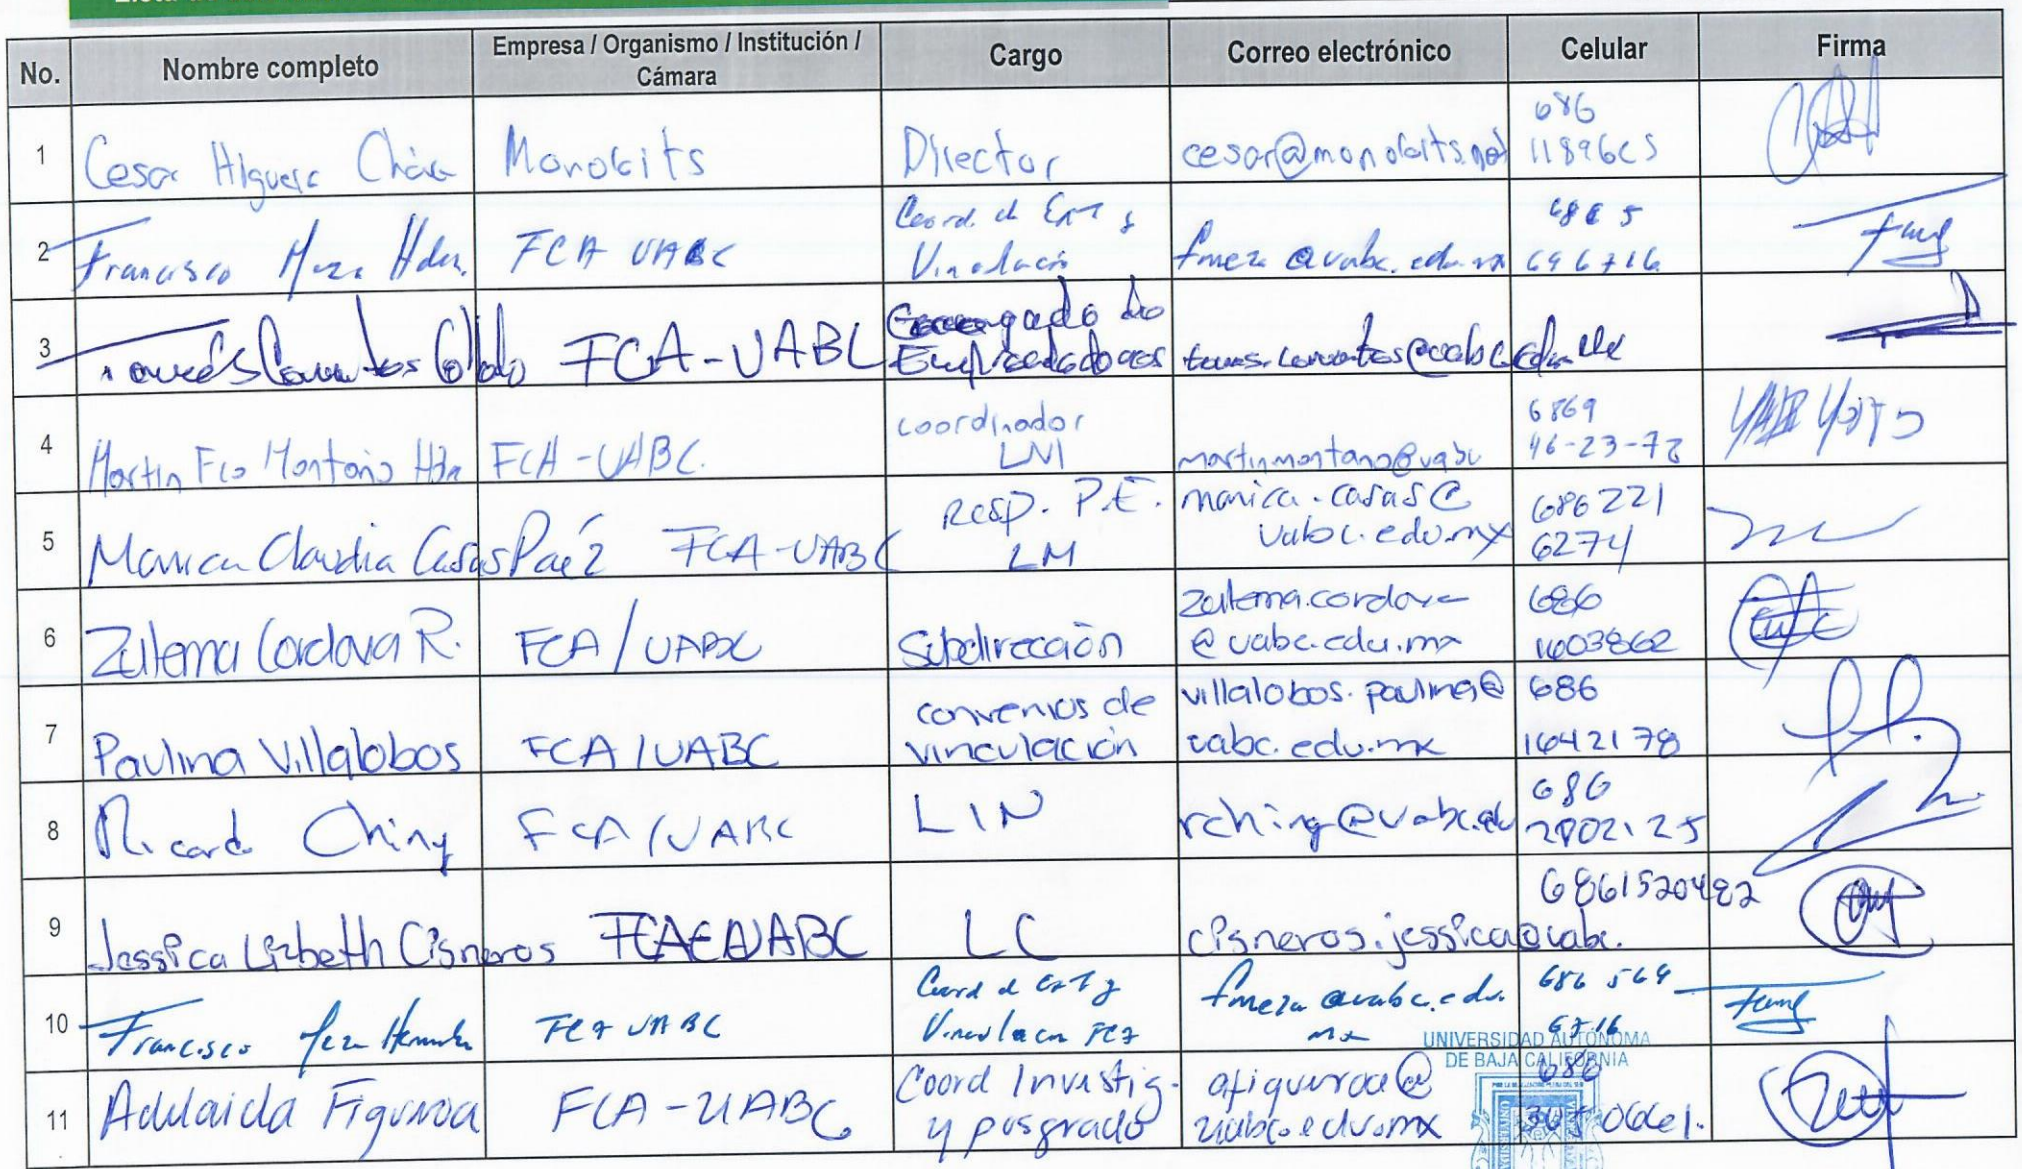 No. Nombre completo Empresa / Organismo / Institución / Cámara Cargo Correo electrónico Celular Firma
1 Cesar Higuera Chávez Monokits Director cesar@monokits.net 686
2 Francisco Meza Hdez. FCA UABC Coord d Ext y Vinculación fmeza@uabc.edu.mx
3 Cervantes Collado FCA-UABC Encargado de Emprendedores
4 Martin Fco Montaño Hdz FCA-UABC. coordinador LNI martinmontano@uabc 6869 46-23-72
5 Monica Claudia Casas Paéz FCA-UABC Resp. P.E. LM monica.casas@ uabc.edu.mx 686 221 6274
6 Zulema Cordova R. FCA/UABC Subdirección zulema.cordova @uabc.edu.mx 686 1603862
7 Paulina Villalobos FCA/UABC convenios de vinculación villalobos.paulina@ uabc.edu.mx 686 1642178
8 Ricardo Ching FCA/UABC LIN rching@uabc.edu 686
9 Jessica Lizbeth Cisneros UABC LC cisneros.jessica@uabc. 6861520482
10 Francisco Meza Hernandez FCA UABC Coord d Ext y Vinculacion FCA fmeza@uabc.edu. mx 686 564 6716
UNIVERSIDAD AUTÓNOMA
DE BAJA CALIFORNIA
11 Adelaida Figueroa FCA-UABC Coord Investig- y posgrado afigueroa@ uabc.edu.mx 686